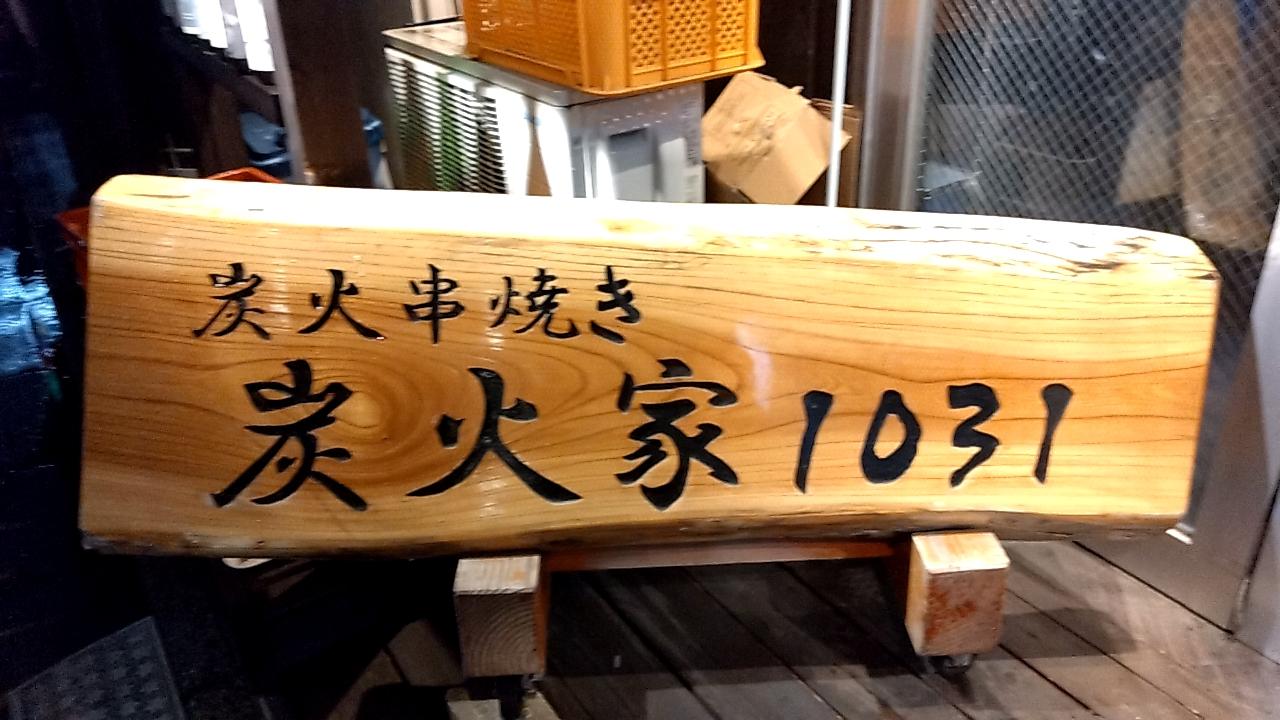 炭火串焼き
炭火家1031